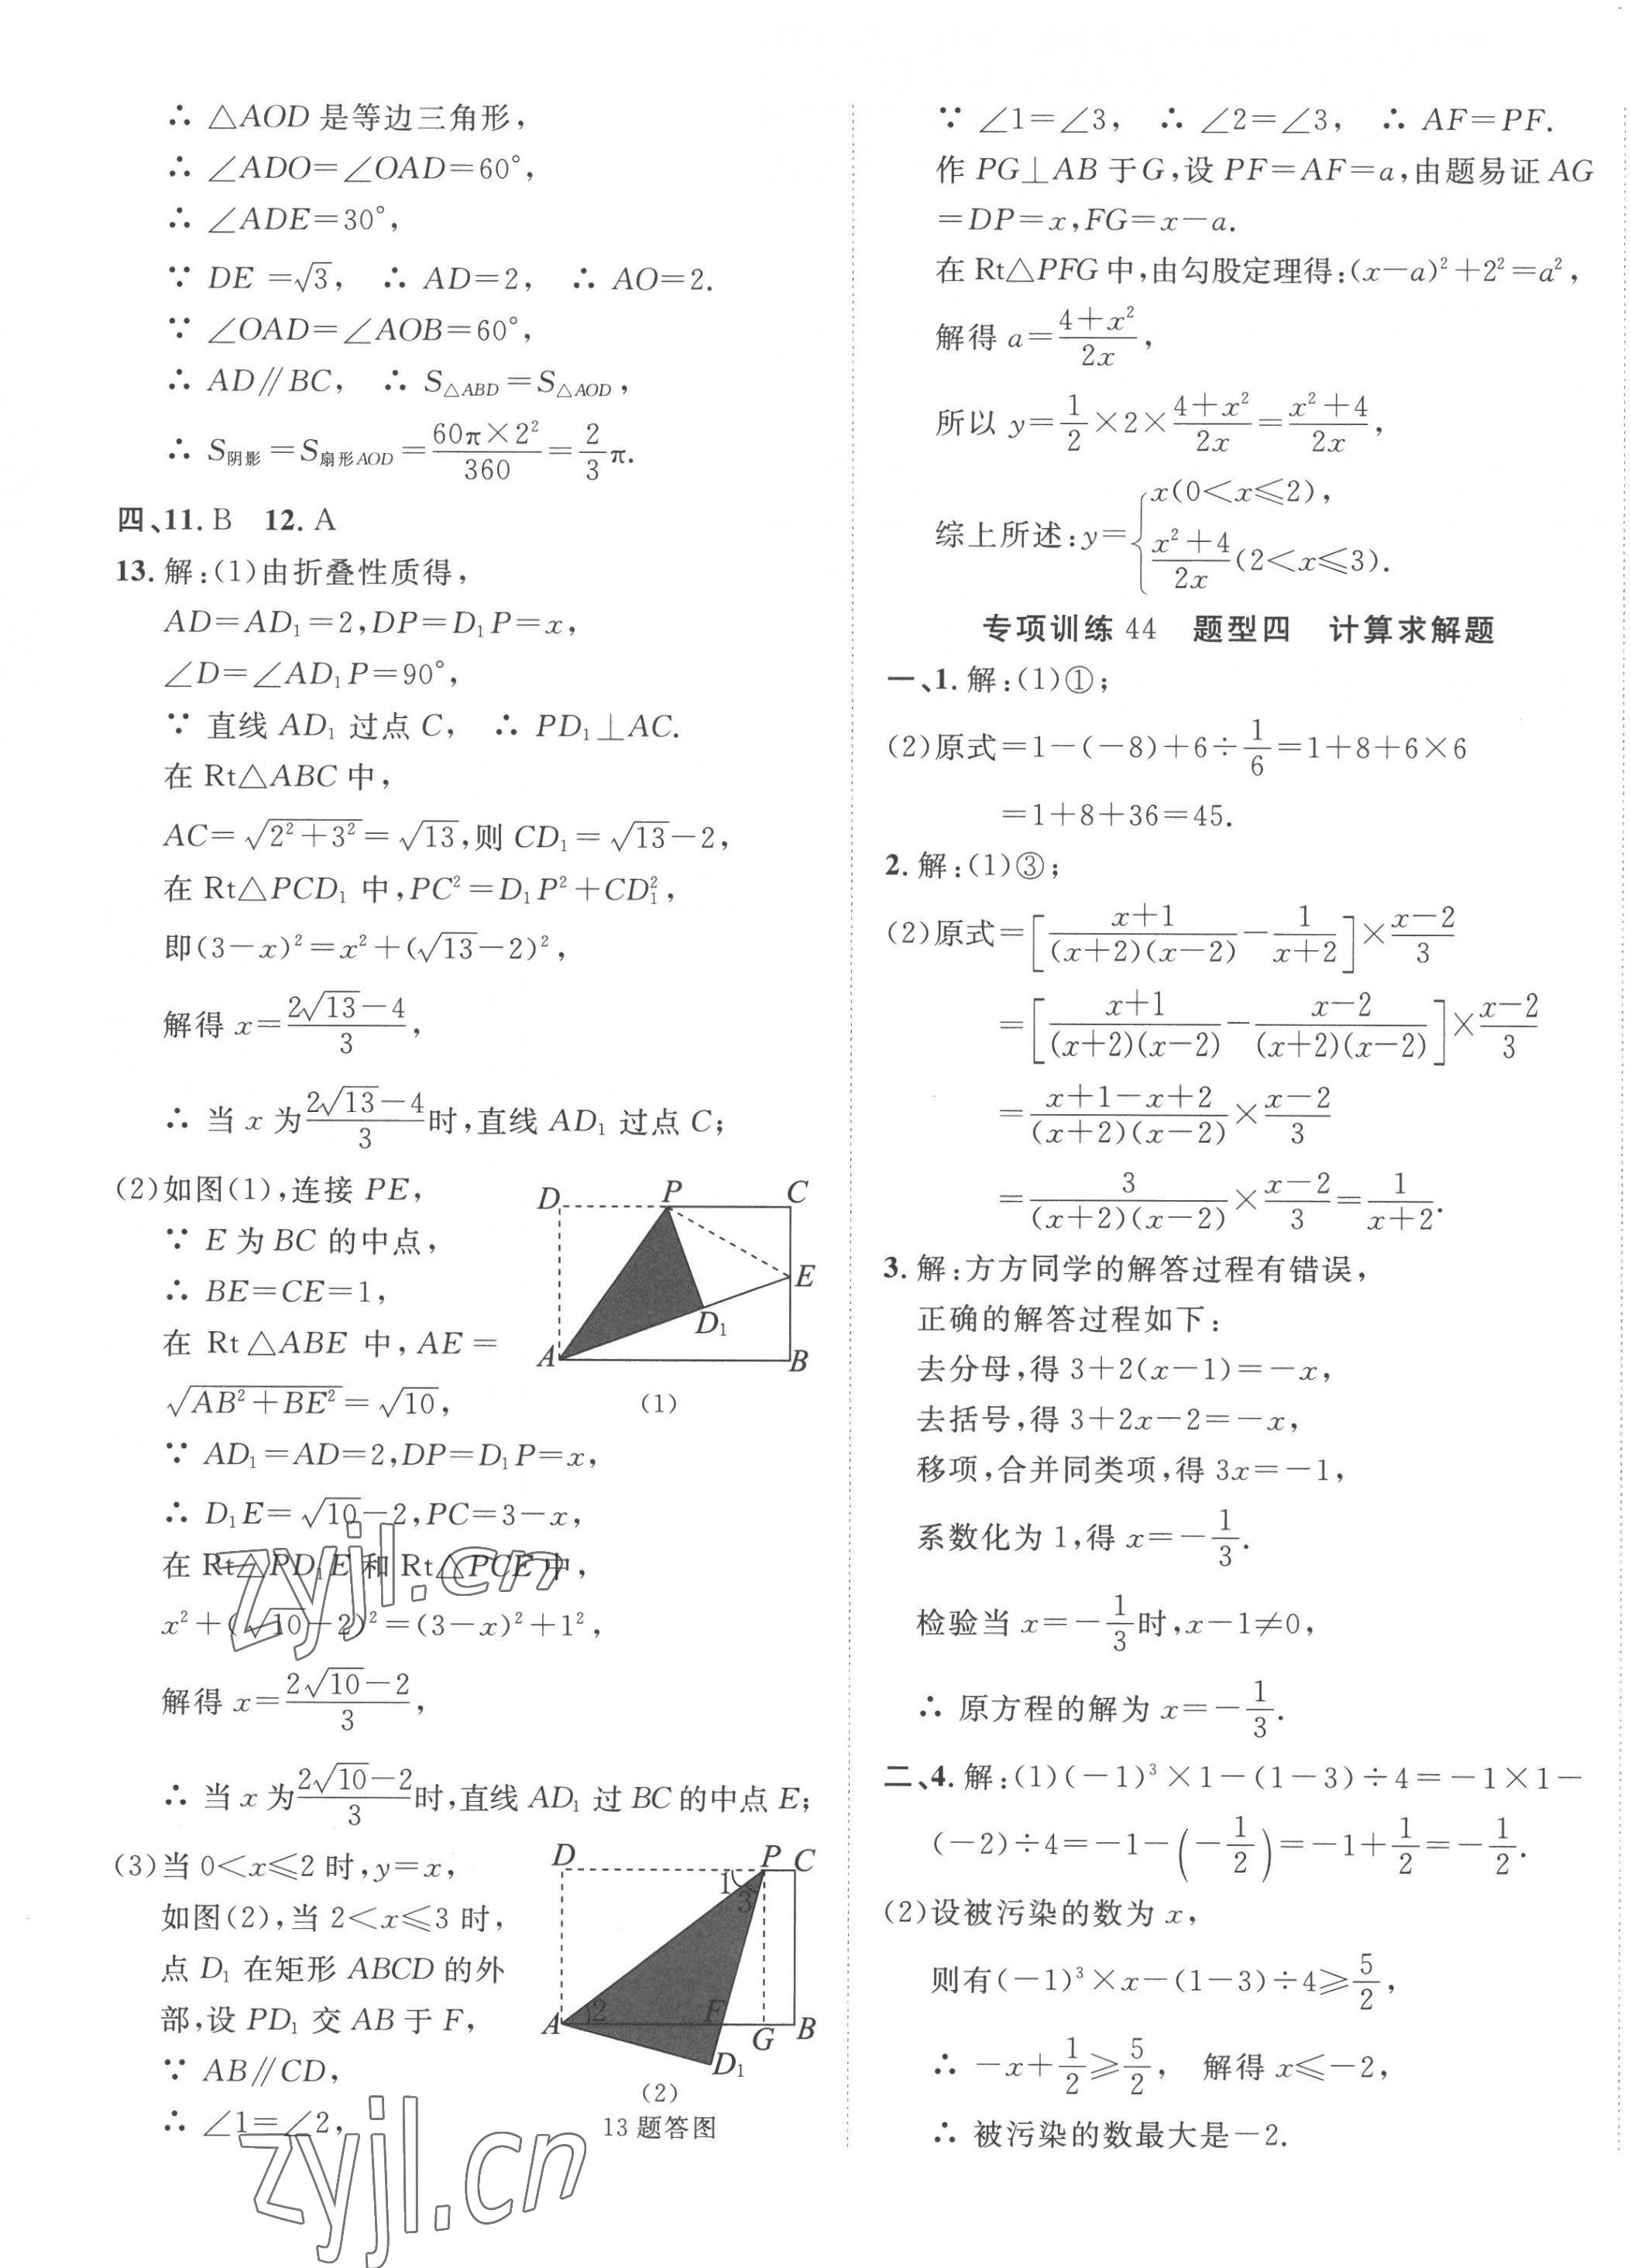 ∴ △AOD 是等边三角形,
∴ ∠ADO=∠OAD=60°,
∴ ∠ADE=30°,
∵ DE=√3, ∴ AD=2, ∴ AO=2.
∵ ∠OAD=∠AOB=60°,
∴ AD∥BC, ∴ S△ABD=S△AOD,
∴ S阴影=S扇形AOD=(60π×2²)/360=(2/3)π.
四、11. B 12. A
13. 解:(1)由折叠性质得,
AD=AD₁=2,DP=D₁P=x,
∠D=∠AD₁P=90°,
∵ 直线 AD₁ 过点 C, ∴ PD₁⊥AC.
在 Rt△ABC 中,
AC=√(2²+3²)=√13,则 CD₁=√13-2,
在 Rt△PCD₁ 中,PC²=D₁P²+CD₁²,
即(3-x)²=x²+(√13-2)²,
解得 x=(2√13-4)/3,
∴ 当 x 为(2√13-4)/3时,直线 AD₁ 过点 C;
(2)如图(1),连接 PE,
∵ E 为 BC 的中点,
∴ BE=CE=1,
在 Rt△ABE 中,AE=
√(AB²+BE²)=√10,
∵ AD₁=AD=2,DP=D₁P=x,
∴ D₁E=√10-2,PC=3-x,
在 Rt△PD₁E 和 Rt△PCE 中,
x²+(√10-2)²=(3-x)²+1²,
解得 x=(2√10-2)/3,
∴ 当 x 为(2√10-2)/3时,直线 AD₁ 过 BC 的中点 E;
(3)当 0<x≤2 时,y=x,
如图(2),当 2<x≤3 时,
点 D₁ 在矩形 ABCD 的外
部,设 PD₁ 交 AB 于 F,
∵ AB∥CD,
∴ ∠1=∠2,
D P C
E
D₁
A B
(1)
D P C
1 3
A 2 F G B
D₁
(2)
13 题答图
zyjl.cn
zyjl.cn
∵ ∠1=∠3, ∴ ∠2=∠3, ∴ AF=PF.
作 PG⊥AB 于 G,设 PF=AF=a,由题易证 AG
=DP=x,FG=x-a.
在 Rt△PFG 中,由勾股定理得:(x-a)²+2²=a²,
解得 a=(4+x²)/(2x),
所以 y=1/2×2×(4+x²)/(2x)=(x²+4)/(2x),
综上所述:y={x(0<x≤2),
(x²+4)/(2x)(2<x≤3).
专项训练 44 题型四 计算求解题
一、1. 解:(1)①;
(2)原式=1-(-8)+6÷1/6=1+8+6×6
=1+8+36=45.
2. 解:(1)③;
(2)原式=[(x+1)/((x+2)(x-2))-1/(x+2)]×(x-2)/3
=[(x+1)/((x+2)(x-2))-(x-2)/((x+2)(x-2))]×(x-2)/3
=(x+1-x+2)/((x+2)(x-2))×(x-2)/3
=3/((x+2)(x-2))×(x-2)/3=1/(x+2).
3. 解:方方同学的解答过程有错误,
正确的解答过程如下:
去分母,得 3+2(x-1)=-x,
去括号,得 3+2x-2=-x,
移项,合并同类项,得 3x=-1,
系数化为 1,得 x=-1/3.
检验当 x=-1/3时,x-1≠0,
∴ 原方程的解为 x=-1/3.
二、4. 解:(1)(-1)³×1-(1-3)÷4=-1×1-
(-2)÷4=-1-(-1/2)=-1+1/2=-1/2.
(2)设被污染的数为 x,
则有(-1)³×x-(1-3)÷4≥5/2,
∴ -x+1/2≥5/2, 解得 x≤-2,
∴ 被污染的数最大是-2.